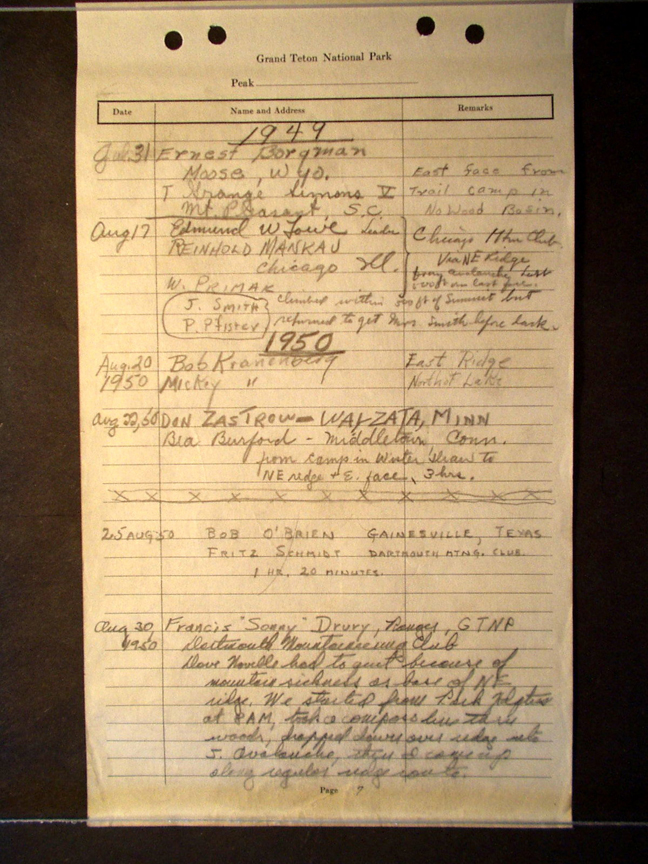 Grand Teton National Park
Peak
Date Name and Address Remarks
1949
31 Ernest Borgman
Moose, Wyo. East face from
T Simons V Trail Camp in
Mt. Pleasant, S.C. No Wood Basin.
Aug 17 Edmund W Lowe Leader Chicago Mtn Club.
REINHOLD MANKAU Via NE Ridge
Chicago Ill.
W. PRIMAK
J. SMITH climbed within ft of Summit but
P. Pfister returned to get Mrs. Smith before dark.
1950
Aug. 20 Bob Kranenberg East Ridge
1950 Mickey " North of Lake
Aug 22, 50 DON ZASTROW - WAYZATA, MINN
Bea Burford - Middletown Conn.
from camp in Winter to
NE ridge + E. face, 3 hrs.
x x x x x x x x x x x
25 AUG 50 BOB O'BRIEN GAINESVILLE, TEXAS
FRITZ SCHMIDT DARTMOUTH MTNG. CLUB
1 HR, 20 MINUTES.
Aug 30, Francis "Sonny" Drury, Ranger, GTNP
1950 Dartmouth Mountaineering Club
Dave Noville had to quit because of
mountain sickness at base of NE
ridge. We started from Park
at 8AM, took a compass line thru
woods, dropped down over ridge into
S. Avalanche, then I came up
along regular ridge route.
Page 7